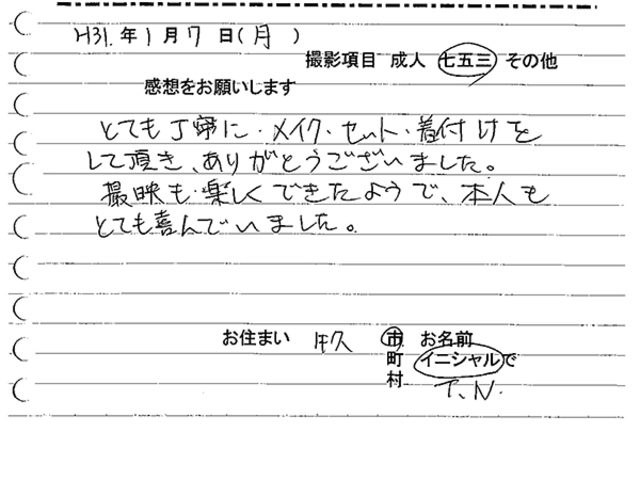 H31.年1月7日(月)
撮影項目 成人 七五三 その他
感想をお願いします
とても丁寧に・メイク・セット・着付けを
して頂き、ありがとうございました。
撮映も楽しくできたようで、本人も
とても喜んでいました。
お住まい 市 お名前
町 イニシャルで
村 T.N.